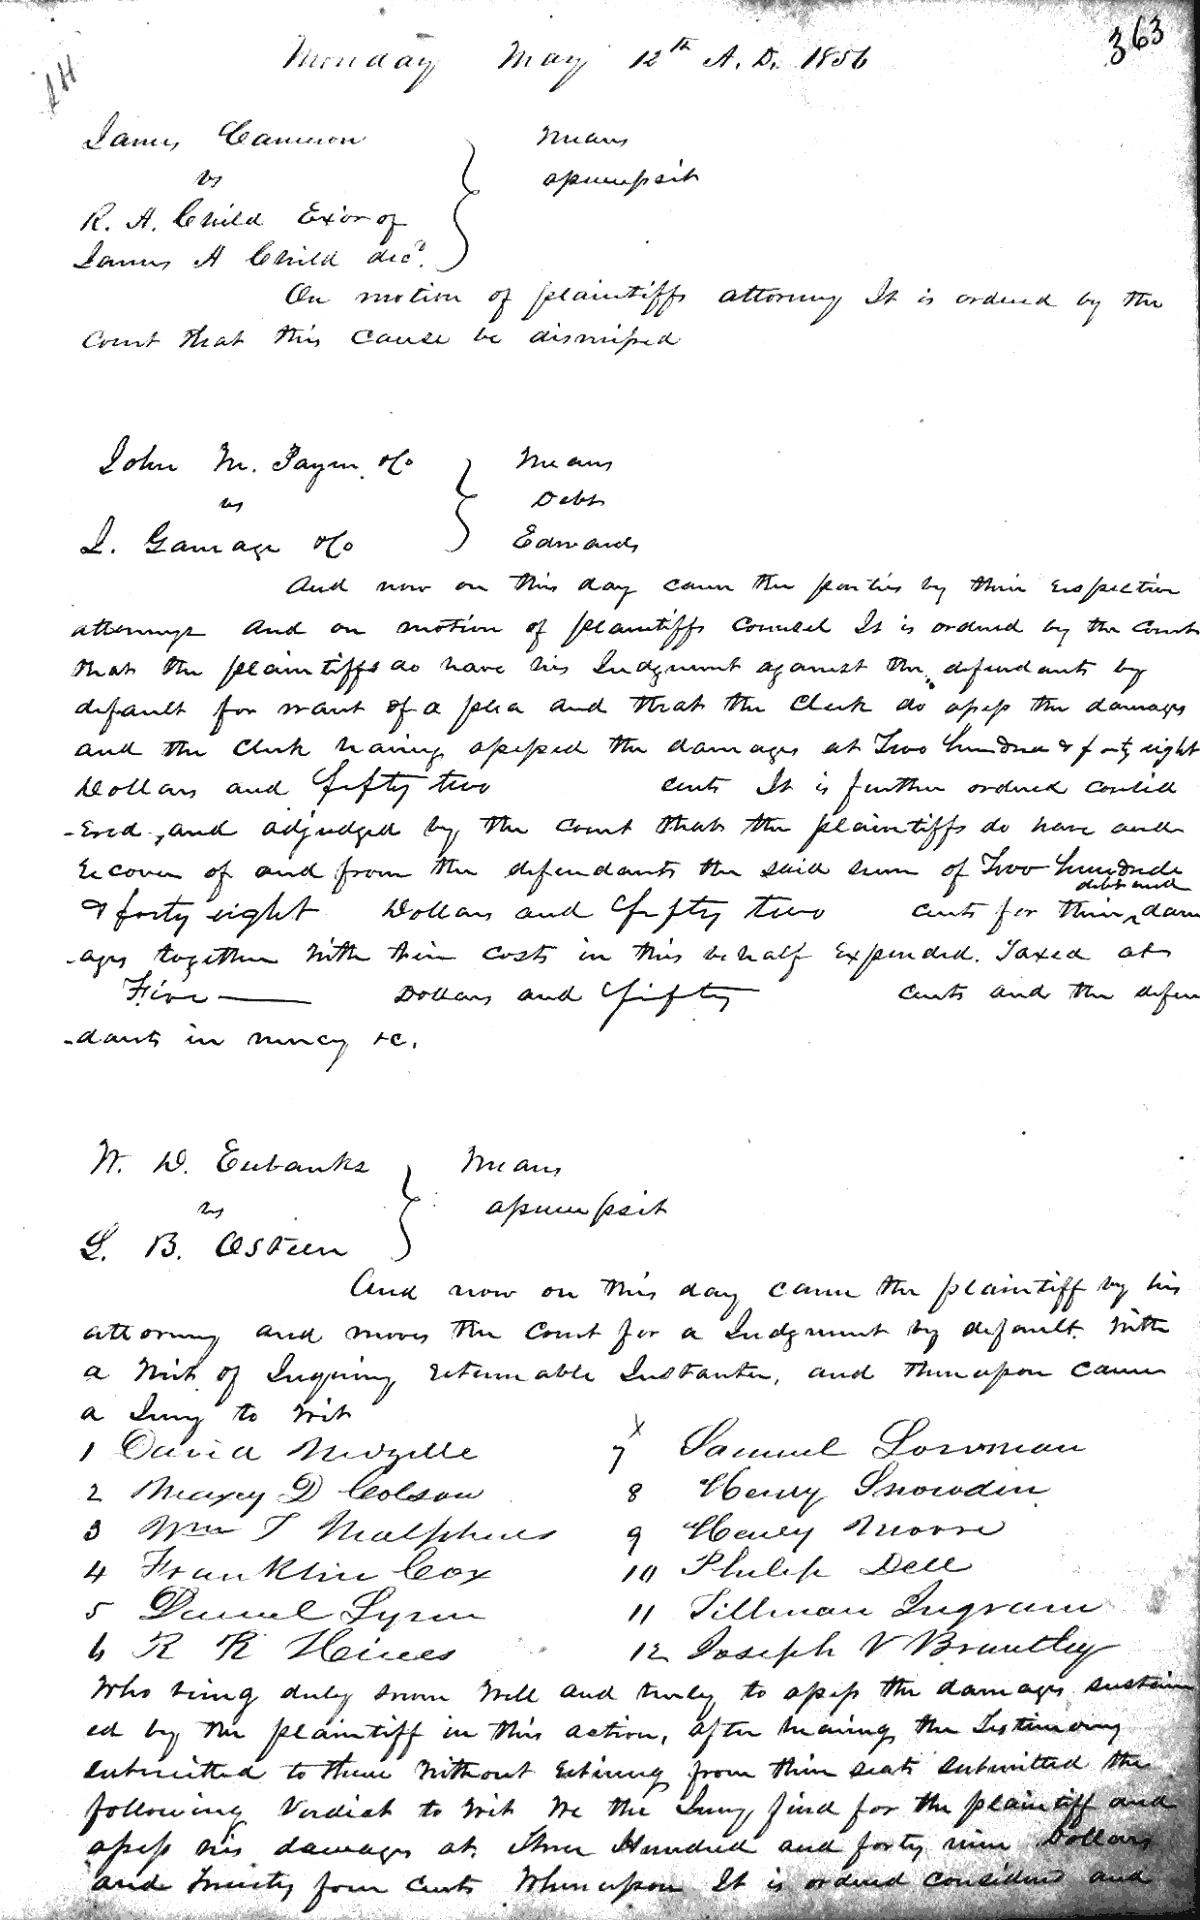 363
Monday May 12th A. D. 1856
James Cameron Means
vs assumpsit
R. A. Child Exor of
James A Child decd.
On motion of plaintiffs attorney It is ordered by the
Court that this cause be dismissed
John M. Payne &Co Means
vs Debt
J. Gamage &Co Edwards
And now on this day came the parties by their respective
attorneys and on motion of plaintiffs counsel It is ordered by the court
that the plaintiffs do have his Judgment against the defendants by
default for want of a plea and that the Clerk do assess the damages
and the Clerk having assessed the damages at Two hundred & forty eight
Dollars and fifty two cents It is further ordered consid
-ered, and adjudged by the court that the plaintiffs do have and
recover of and from the defendants the said sum of Two hundred
debt and
& forty eight Dollars and fifty two cents for their dam
-ages together with their costs in this behalf expended. Taxed at
Five Dollars and fifty cents and the defen
-dants in mercy &c.
W. D. Eubanks Means
vs assumpsit
L. B. Osteen
And now on this day came the plaintiff by his
attorney and moves the court for a Judgment by default. With
a Writ of Inquiry returnable Instanter, and thereupon came
a Jury to wit
1 David Mizelle 7 Samuel Lowman
2 Maxey D Colson 8 Henry Snowden
3 Wm T Malpheus 9 Henry Moore
4 Franklin Cox 10 Philip Dell
5 Daniel Lynn 11 Tillman Ingram
6 R R Hines 12 Joseph V Brantley
Who being duly sworn well and truly to assess the damages sustain
ed by the plaintiff in this action, after hearing the Testimony
submitted to them without retiring from their seats submitted the
following Verdict to wit We the Jury find for the plaintiff and
assess his damages at Three Hundred and forty nine Dollars
and Twenty four Cents Whereupon It is ordered considered and